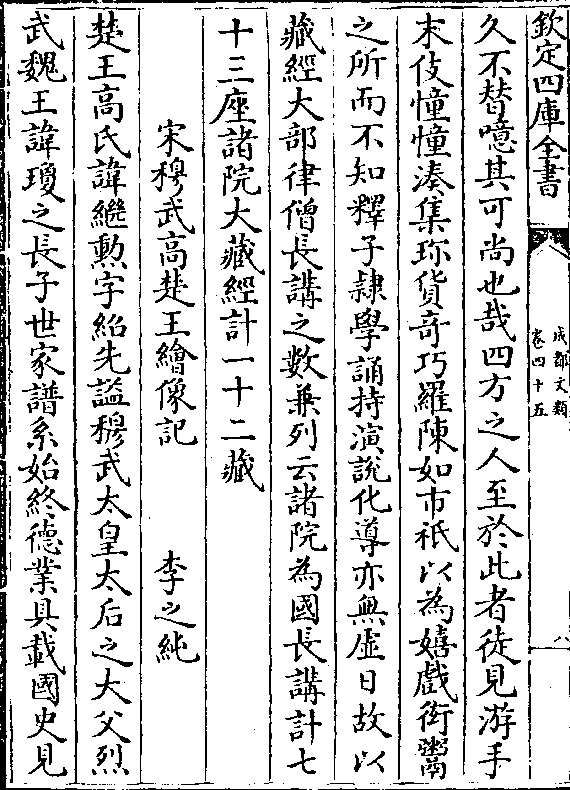 欽定四庫全書
成都文類
卷四十五
八
久不替噫其可尚也哉四方之人至於此者徒見游手
末伎憧憧湊集珎貨竒巧羅陳如市祇以為嬉戲衒鬻
之所而不知釋子隷學誦持演說化導亦無虛日故以
藏經大部律僧長講之數兼列云諸院為國長講計七
十三座諸院大藏經計一十二藏
宋穆武高楚王繪像記 李之純
楚王高氏諱繼勲字紹先謚穆武太皇太后之大父烈
武魏王諱瓊之長子世家譜系始終德業具載國史見